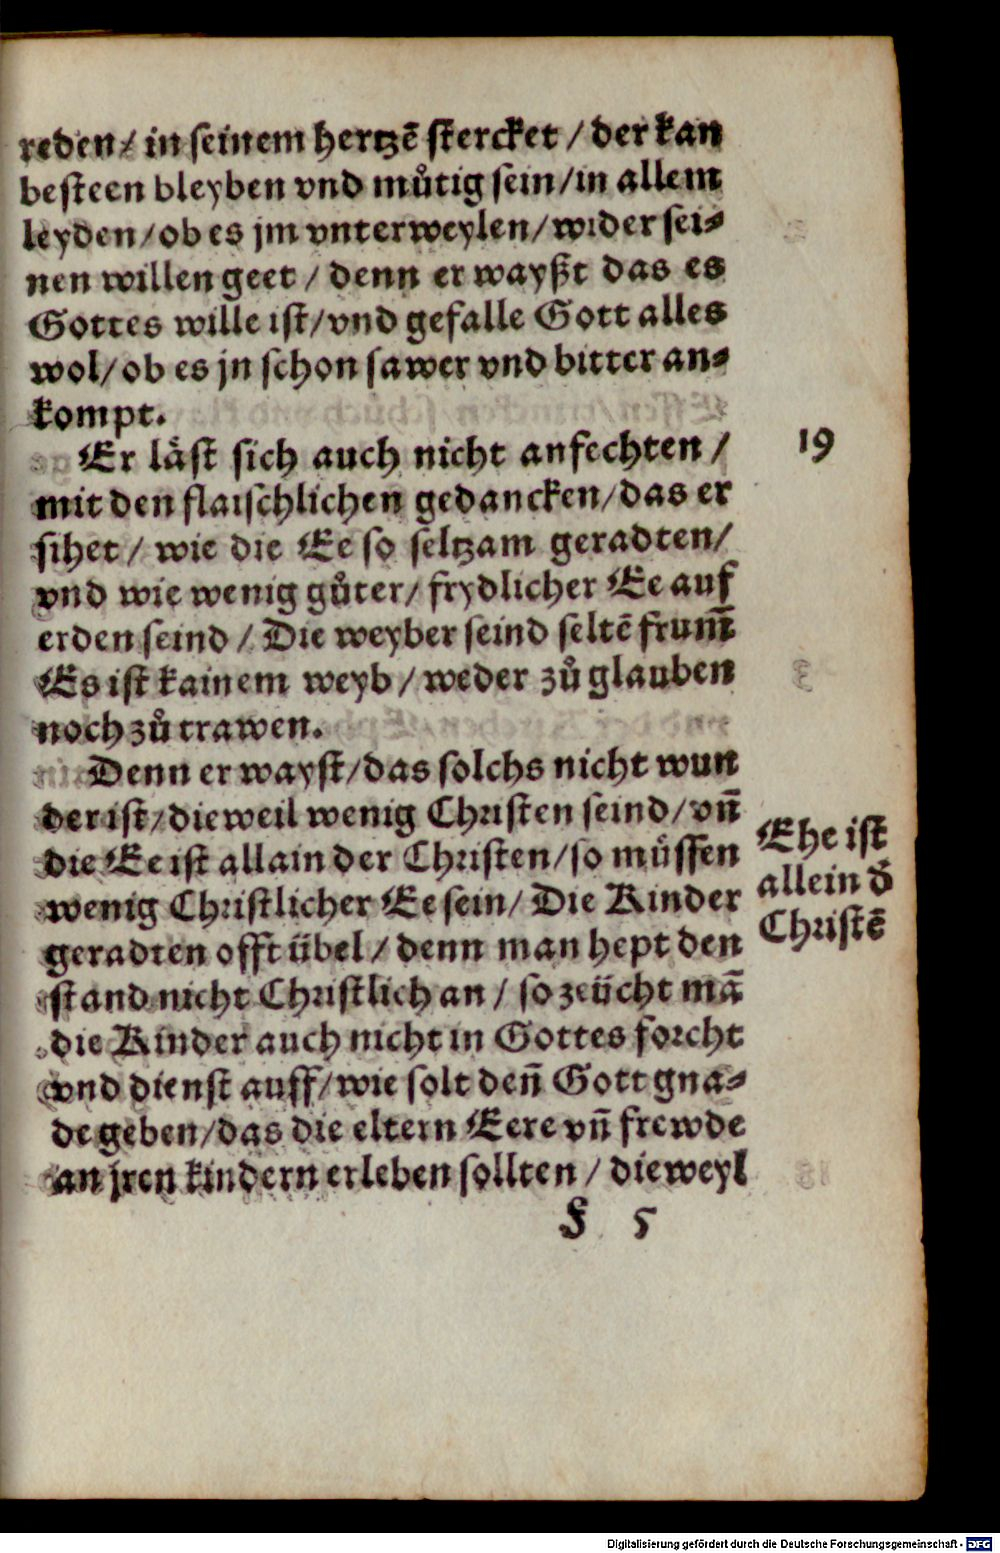 reden/ in seinem hertzē stercket / der kan
besteen bleyben vnd můtig sein/in allem
leyden/ob es jm vnterweylen/wider sei⸗
nen willen geet / denn er wayßt das es
Gottes wille ist/vnd gefalle Gott alles
wol/ob es jn schon sawer vnd bitter an⸗
kompt.
Er låst sich auch nicht anfechten /
19
mit den flaischlichen gedancken/das er
sihet / wie die Ee so seltzam geradten/
vnd wie wenig gůter/ frydlicher Ee auf
erden seind / Die weyber seind seltē frum̄
Es ist kainem weyb / weder zů glauben
noch zů trawen.
Denn er wayst/das solchs nicht wun
der ist/dieweil wenig Christen seind/vn̄
die Ee ist allain der Christen/so müssen
wenig Christlicher Ee sein/ Die Kinder
geradten offt übel/ denn man hept den
stand nicht Christlich an / so zeücht mā
die Kinder auch nicht in Gottes forcht
vnd dienst auff/wie solt den̄ Gott gna⸗
de geben/das die eltern Eere vn̄ frewde
an jren kindern erleben sollten / dieweyl
Ehe ist
allein d̄
Christē
F 5
Digitalisierung gefördert durch die Deutsche Forschungsgemeinschaft - DFG